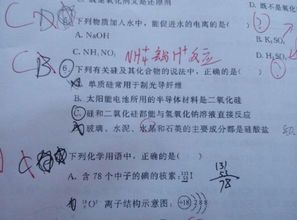 下列物质加入水中，能促进水的电离的是（ ）
A. NaOH
B. K₂SO₄
C. NH₄NO₃
D. H₂SO₄
NH₄⁺
H⁺反应
下列有关硅及其化合物的说法中，正确的是（ ）
单质硅常用于制光导纤维
B. 太阳能电池所用的半导体材料是二氧化硅
C. 硅和二氧化硅都能与氢氧化钠溶液直接反应
玻璃、水泥、水晶和石英的主要成分都是硅酸盐
下列化学用语中，正确的是（ ）
A. 含 78 个中子的碘的核素：
131
53
78
¹⁸O²⁻ 离子结构示意图：